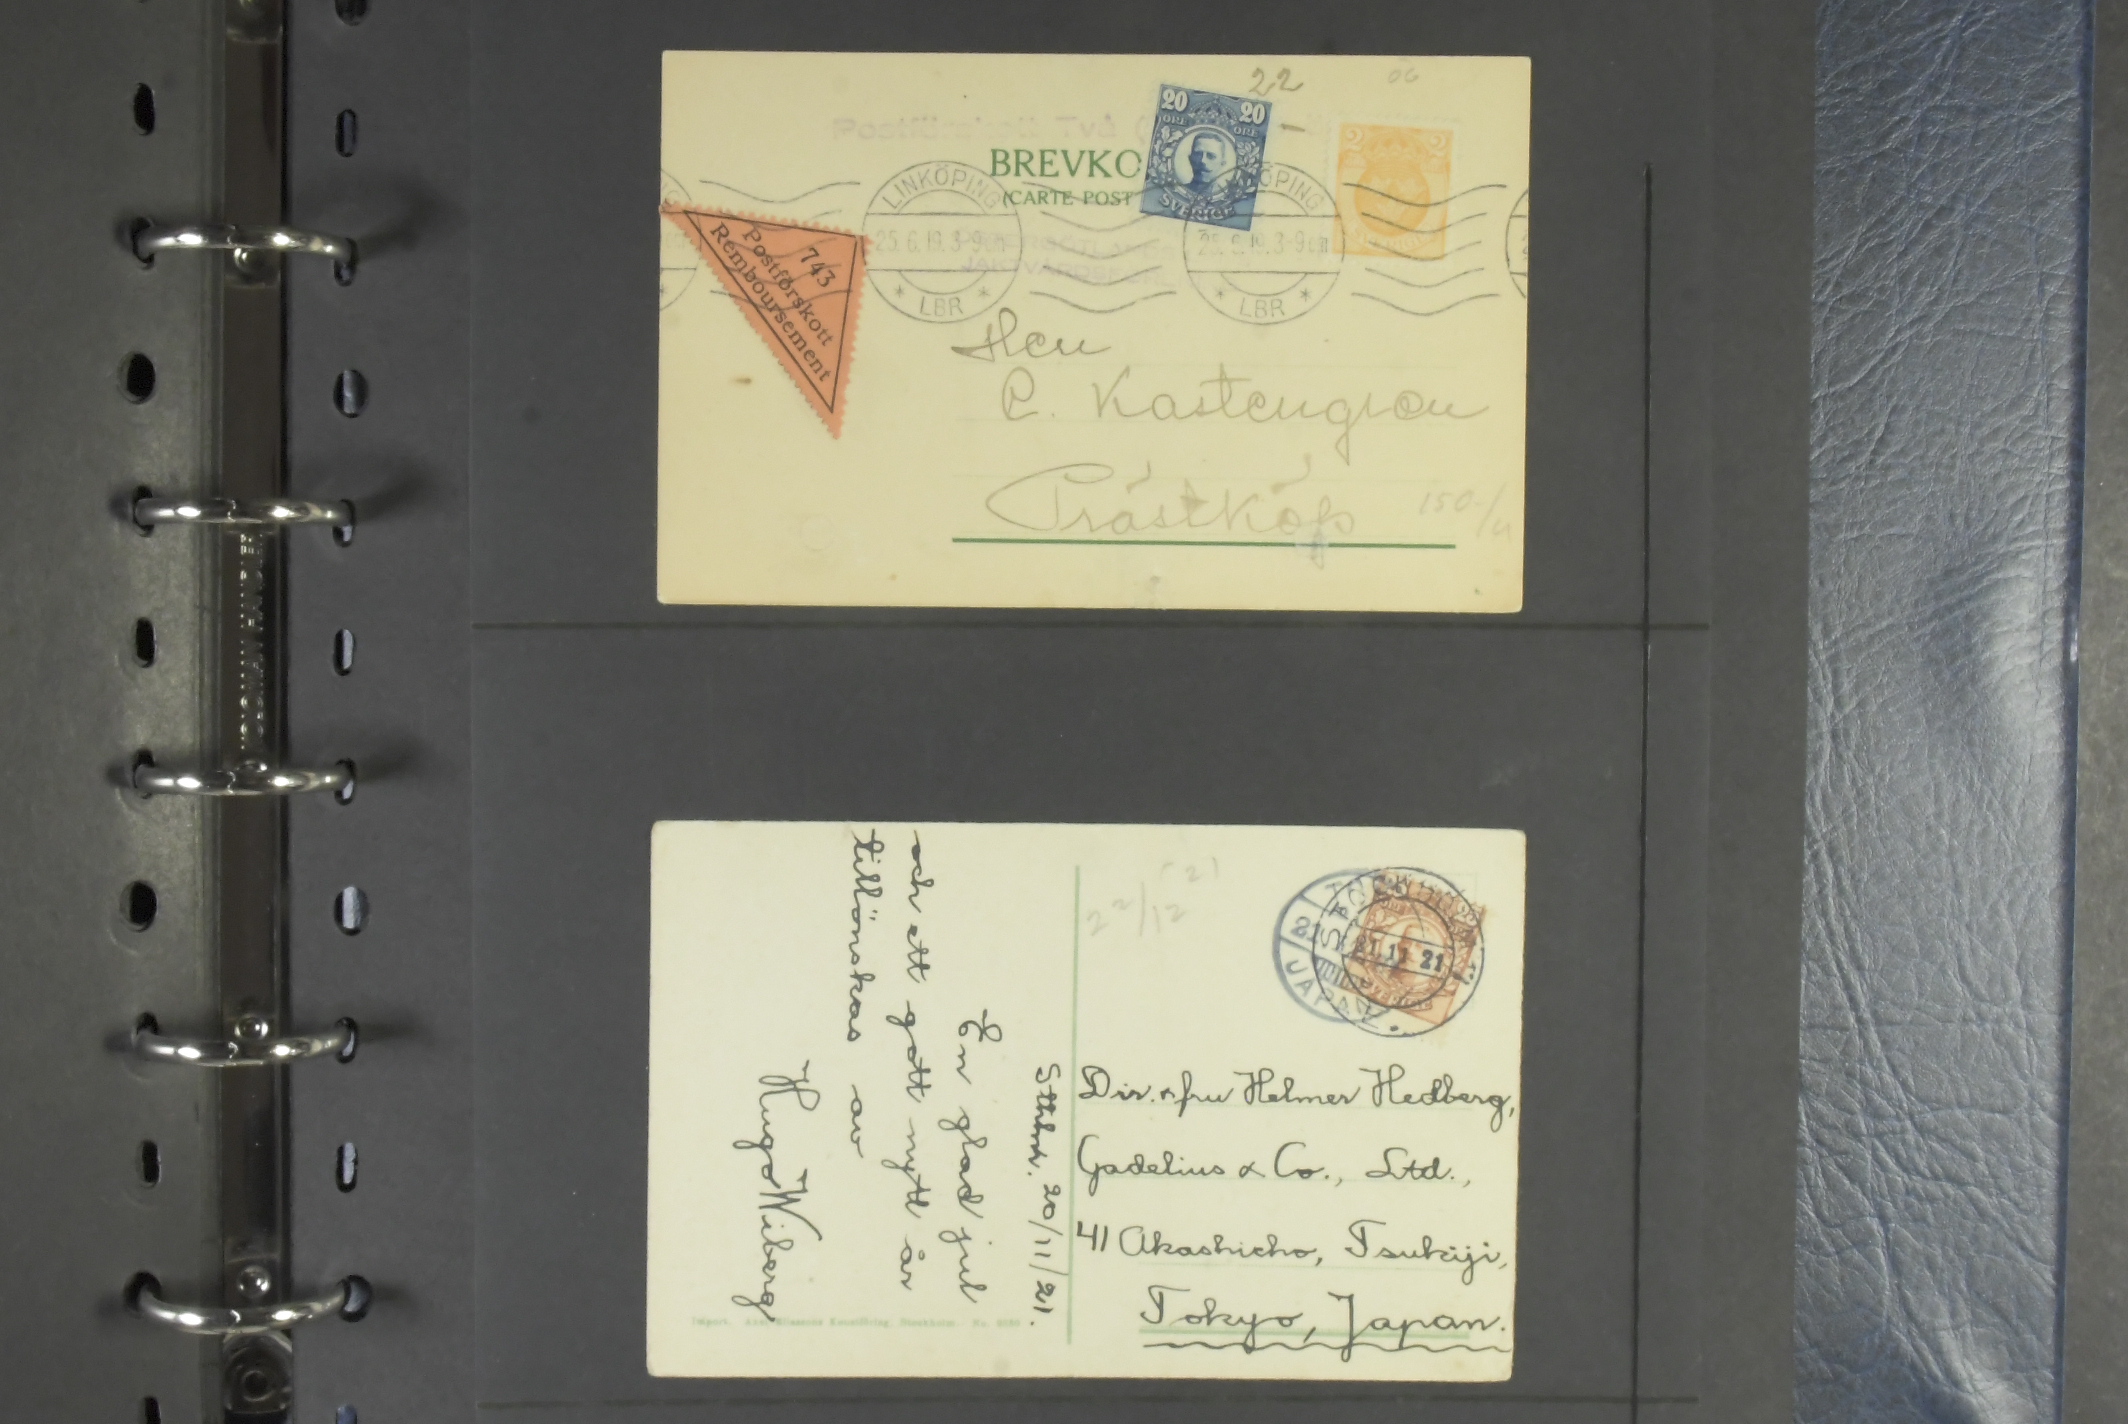 22
Postförskott Två
BREVKO
(CARTE POST
20 20
ÖRE ÖRE
SVERIGE
2 2
SVERIGE
LINKÖPING
25.6.19.3-9em
* LBR *
KÖPING
25.6.19.3-9em
* LBR *
743
Postförskott
Remboursement
Herr
C. Kastengren
Prästköp
150-/
HANDLER
22/12
STOCKHOLM
21.11.21
JAPAN
SVERIGE
Dir. & fru Helmer Hedberg,
Gadelius & Co., Ltd.,
41 Akashicho, Tsukiji,
Tokyo, Japan.
Sthlm. 20/11/21.
En glad jul
och ett gott nytt år
tillönskas av
Hugo Wiberg
Import. Axel Eliassons Konstförlag, Stockholm. No.